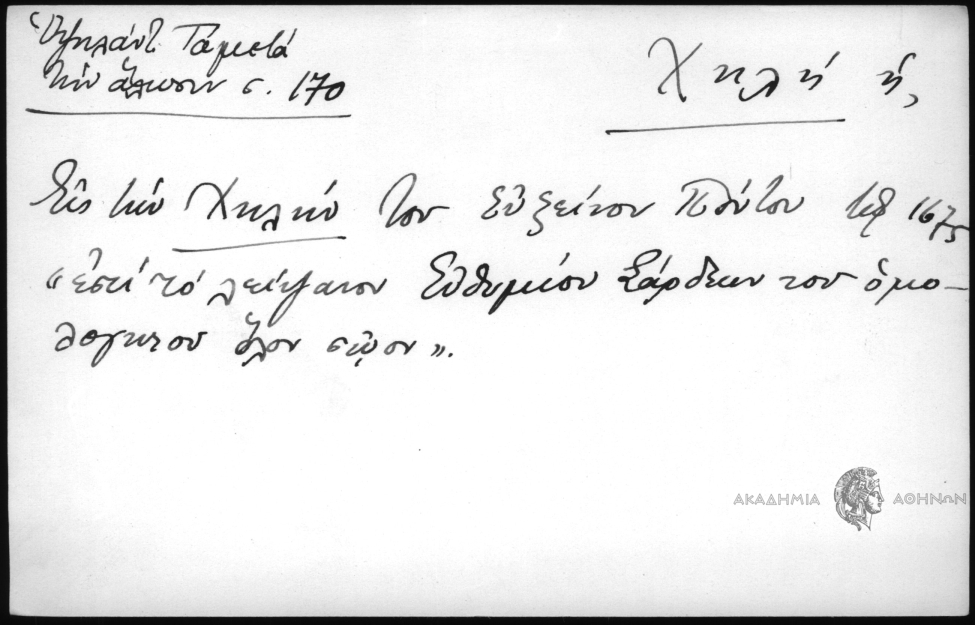 Ὑψηλάντ Τά μετά
τήν ἅλωσιν σ. 170
Χηλή ἡ,
Εἰς τήν Χηλήν τοῦ Εὐξείνου Πόντου τῷ 1675
«ἐστί τό λείψανον Εὐθυμίου Σάρδεων τοῦ ὁμο-
λογητοῦ ὅλον σῶον».
ΑΚΑΔΗΜΙΑ ΑΘΗΝΩΝ